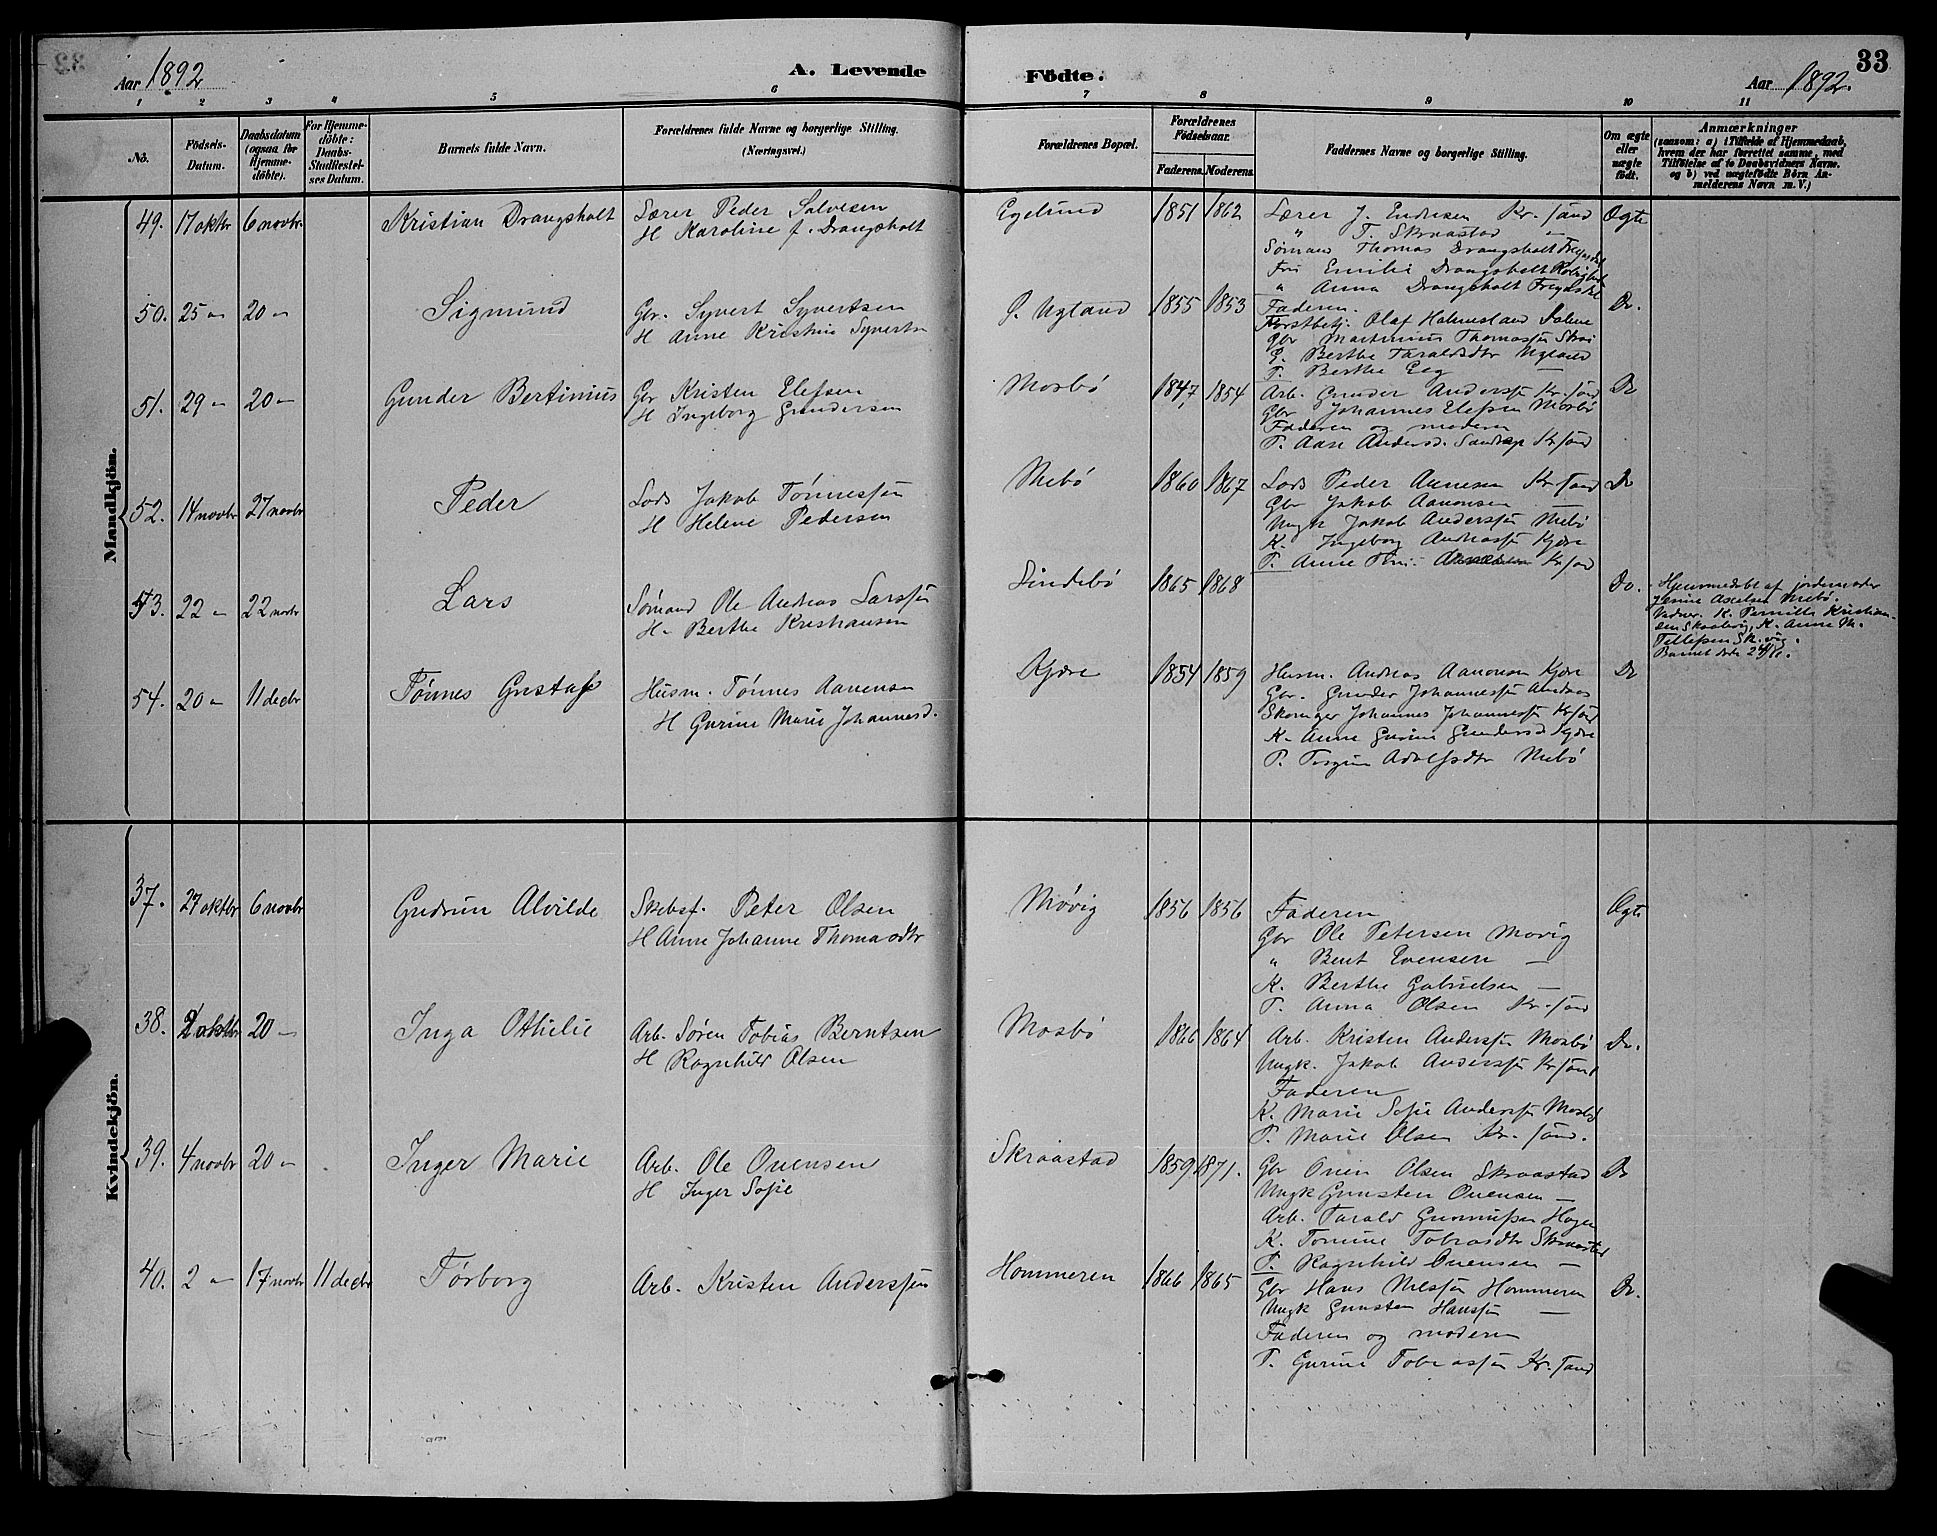 Aar 1892
A. Levende
Födte.
Aar 1892.
33
1 2 3 4 5 6 7 8 9 10 11
No.
Födsels-
Datum.
Daabsdatum
(ogsaa for
Hjemme-
döbte).
For Hjemme-
döbte:
Daabs-
Stadfestel-
ses Datum.
Barnets fulde Navn.
Forældrenes fulde Navne og borgerlige Stilling.
(Næringsvei.)
Forældrenes Bopæl.
Forældrenes
Födselsaar.
Faderens. Moderens.
Faddernes Navne og borgerlige Stilling.
Om ægte
eller
uægte
födt.
Anmærkninger
(saasom: a) i Tilfælde af Hjemmedaab,
hvem der har forrettet samme, med
Tilföielse af to Daabsvidners Navne.
og b) ved uægtefödte Börn An-
melderens Navn m. V.)
Mandkjön.
49. 17 oktbr 6 novbr. Kristian Drangsholt
Lærer Peder Salvesen
H Karoline f. Drangsholt
Egelund 1851 1862
Lærer J. Endresen Kr. sand
" T. Skraastad –
Sømand Thomas Drangsholt
Fru Emilie Drangsholt
" Anna Drangsholt
Ægte
50. 25 – 20 – Sigmund
Gbr. Syvert Syvertsen
H Anne Kristine Syvertsn
Ø. Ugland 1855 1853
Faderen.
Forstbetj. Olaf Holmesland
Gbr Martinius Thomassen
G. Berthe Taraldsdtr Ugland
P. Berthe Eeg –
Do.
51. 29 – 20 – Gunder Bertinius
Gbr Kristen Elefsen
H Ingeborg Gundersen
Mosbø 1847 1854
Arb. Gunder Anderssen Kr. sand
Gbr Johannes Elefsen Mosbø
Faderen og moderen
P. Aase Andersd. Kr sand
Do
52. 14 novbr 27 novbr Peder
Lods Jakob Tønnessen
H Helene Pedersen
Mebø 1860 1867
Lods Peder Aanesen Kr. sand
Gbr Jakob Aanonsen –
Ungk Jakob Anderssen Mebø
K. Ingeborg Andreassen Kjære
P. Anne Kr sand
Do
53. 22 – 22 novbr Lars
Sømand Ole Andreas Larssen
H. Berthe Kristiansen
Lindebø 1865 1868
Do.
Hjemmedøbt af jordemoder
Jensine Axelsen Mebø.
Vidner K. Pernille Kristian-
sen Skaalevig, K. Anne M.
Tellefsen Sk.vig.
Barnet døde 24/11.
54. 20 – 11 decbr Tønnes Gustaf
Husm. Tønnes Aanensen
H Gurine Marie Johannesd.
Kjære 1854 1859
Husm. Andreas Aanonsen Kjære
Gbr. Gunder Johannessen
Skomager Johannes Johannessen Kr. sand
K. Anne Gurine Gundersd Kjære
P. Adolfsdtr Mebø
Do
Kvindekjön.
37. 27 oktbr 6 novbr Gudrun Alvilde
Skibsf. Peter Olsen
H Anne Johanne Thomasdtr
Møvig 1856 1856
Faderen
Gbr Ole Petersen Møvig
" Bent Evensen –
K. Berthe Gabrielsen –
P. Anna Olsen Kr. sand
Ægte
38. 2 oktbr 20 – Inga Othilie
Arb. Søren Tobias Berntsen
H Ragnhild Olsen
Mosbø 1866 1864
Arb. Kristen Anderssen Mosbø
Ungk. Jakob Anderssen Kr sand
Faderen
K. Marie Sofie Anderssen Mosbø
P. Marie Olsen Kr. sand.
Do.
39. 4 novbr 20 – Inger Marie
Arb. Ole Ouensen
H Inger Sofie
Skraastad 1859 1871.
Gbr Ouen Olsen Skraastad
Ungk Gunsten Ouensen –
Arb. Tarald Gunnufsen Hagen
K. Tomine Tobiasdtr Skraastad
P. Ragnhild Ouensen –
Do
40. 2 – 17 novbr 11 decbr Tørborg
Arb. Kristen Anderssen
Hommeren 1866 1865
Gbr Hans Nilssen Hommeren
Ungk Gunsten Hanssen –
Faderen og moderen
P. Gurine Tobiassen Kr. sand
Do.